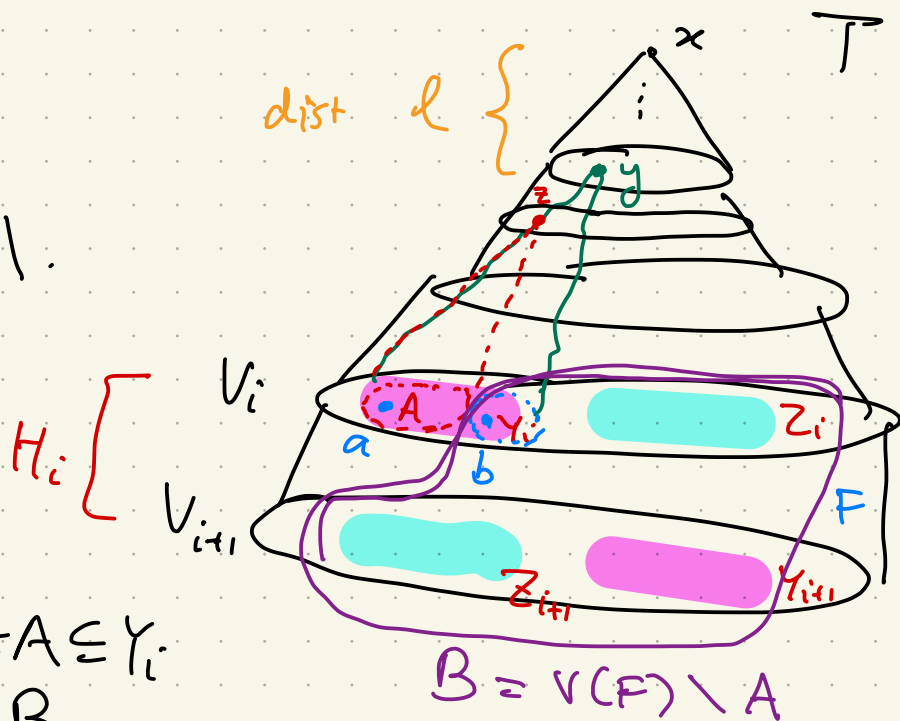 x
T
dist l
y
z
1.
V_i
A
Y_i
Z_i
a
b
H_i
F
V_{i+1}
Z_{i+1}
Y_{i+1}
A ⊆ Y_i
B = V(F) \ A
B